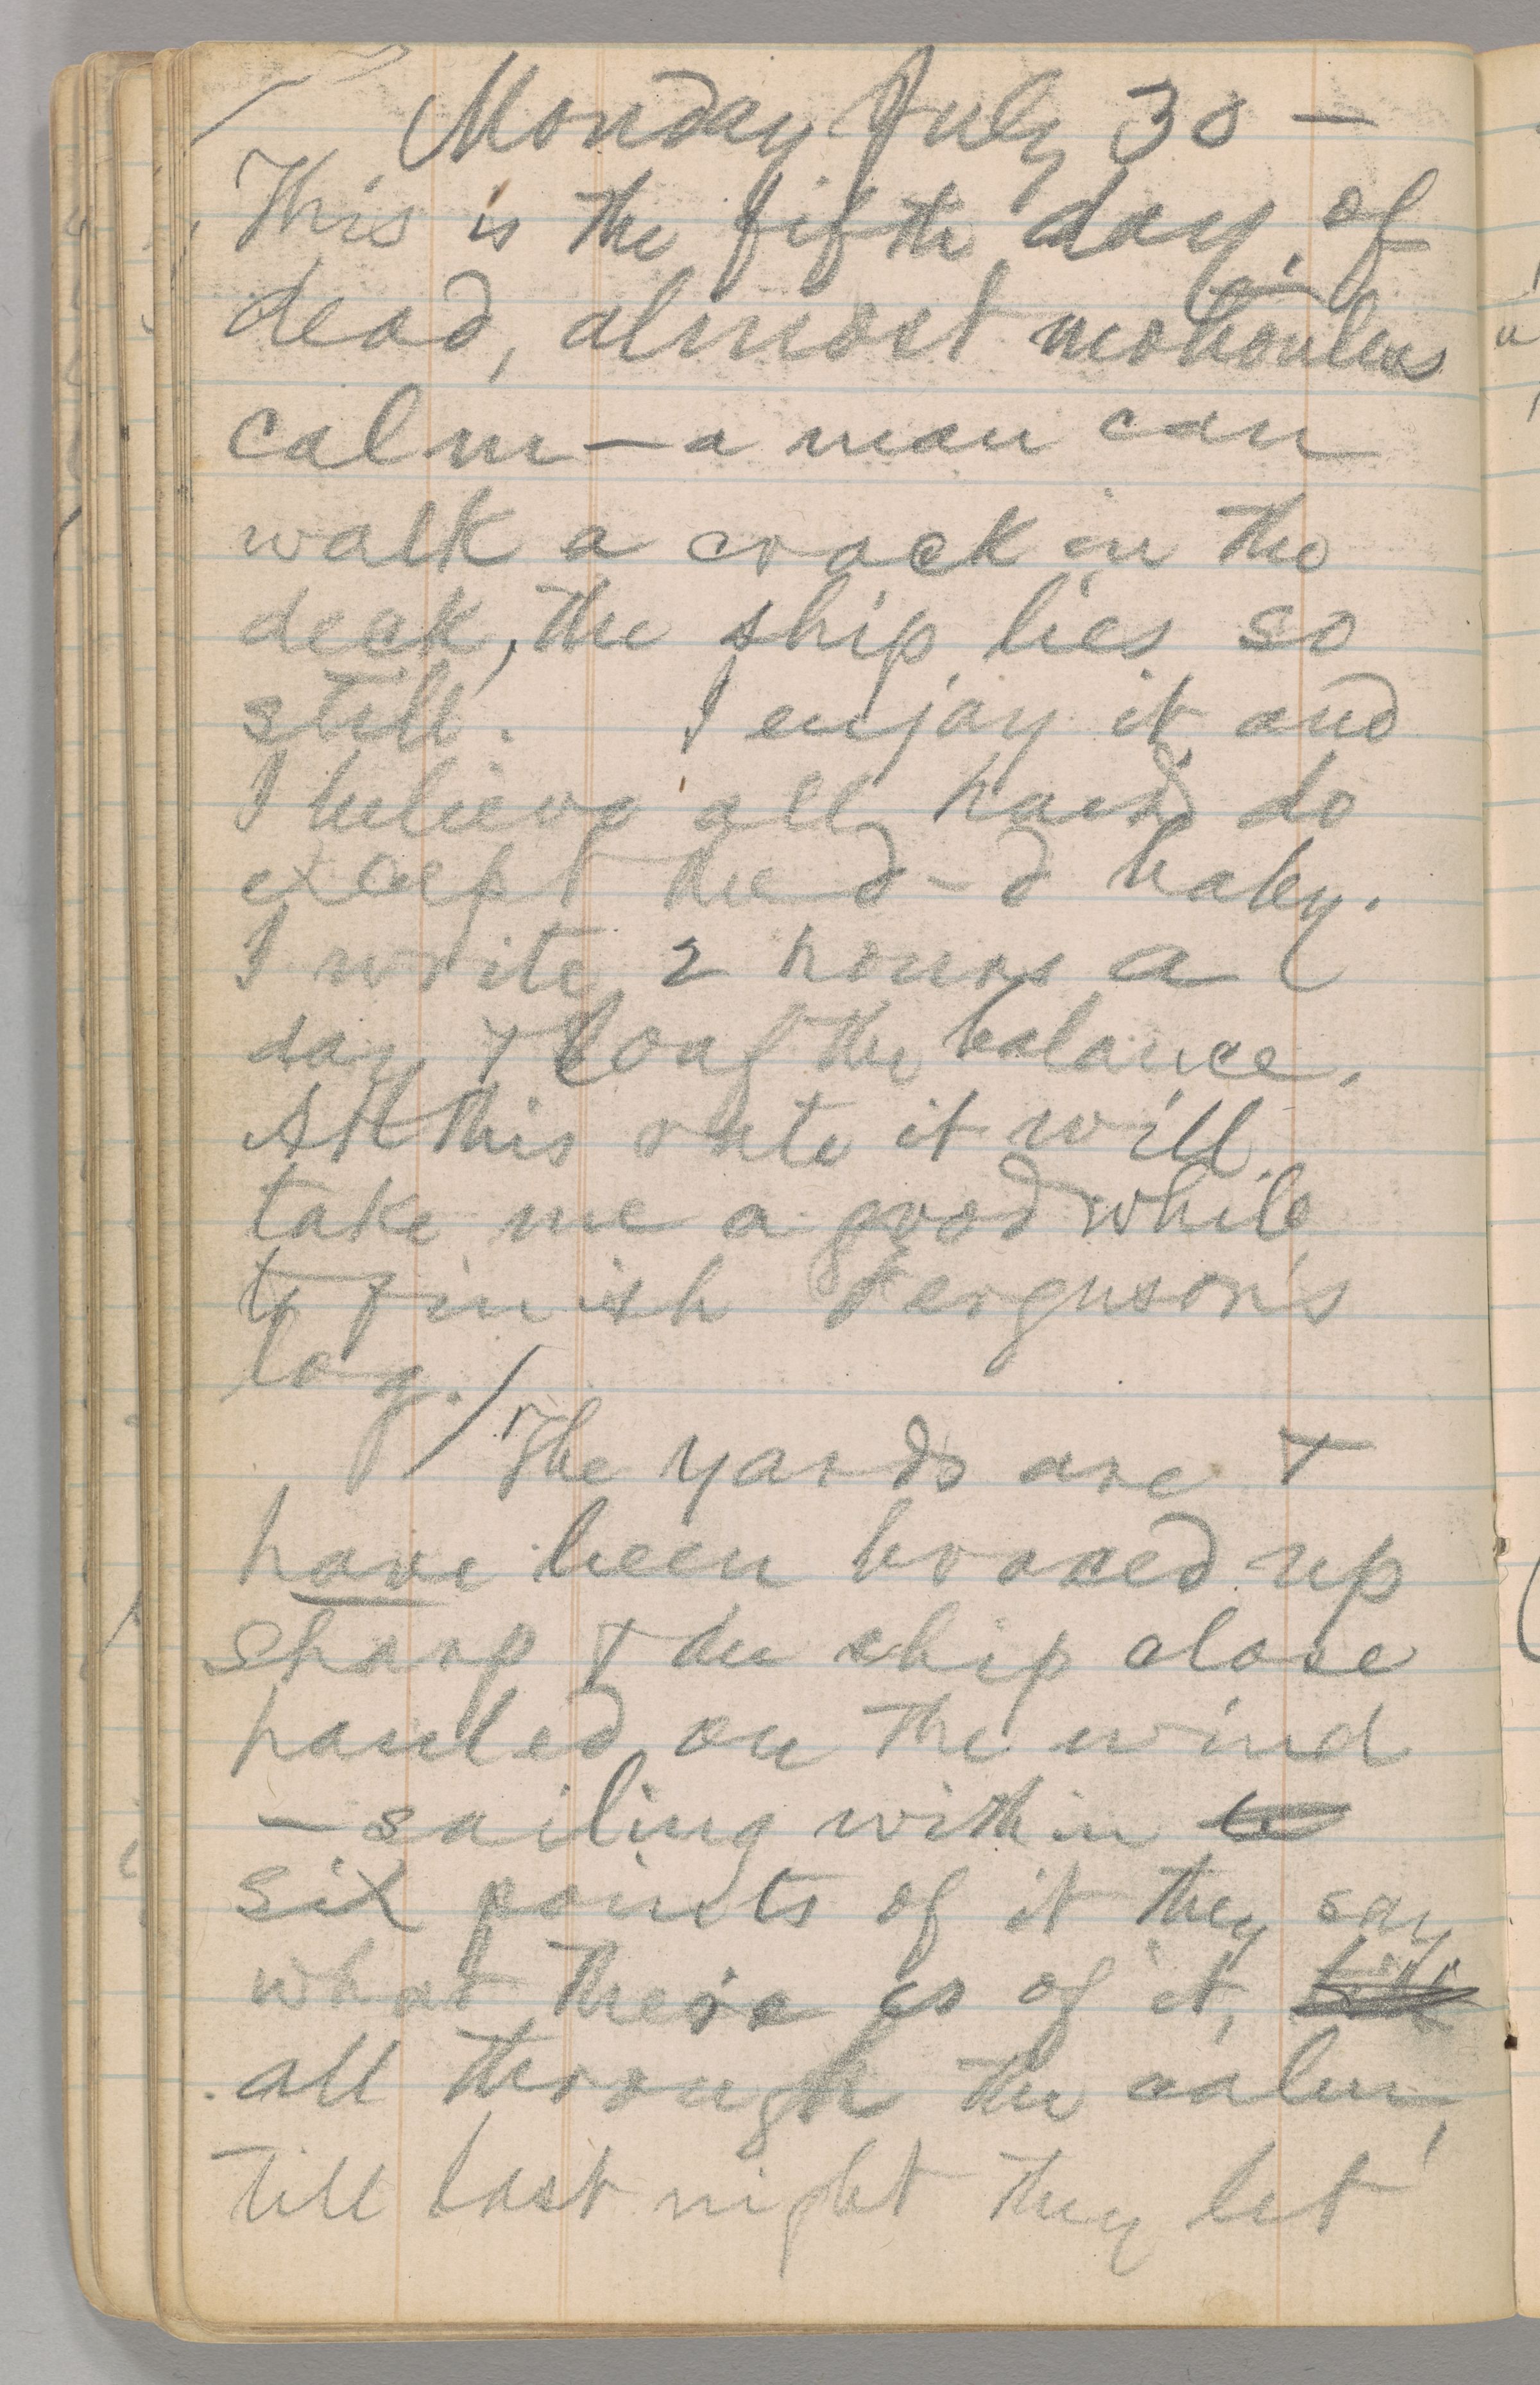 Monday July 30 —
This is the fifth day of
dead, almost motionless
calm — a man can
walk a crack in the
deck, the ship lies so
still. I enjoy it and
I believe all hands do
except the d—d baby.
I write 2 hours a
day & loaf the balance.
At this rate it will
take me a good while
to finish Ferguson's
log. / The yards are &
have been braced up
sharp & the ship close
hauled on the wind
— sailing within
six points of it they say
what there is of it, till
all through the calm,
till last night they let